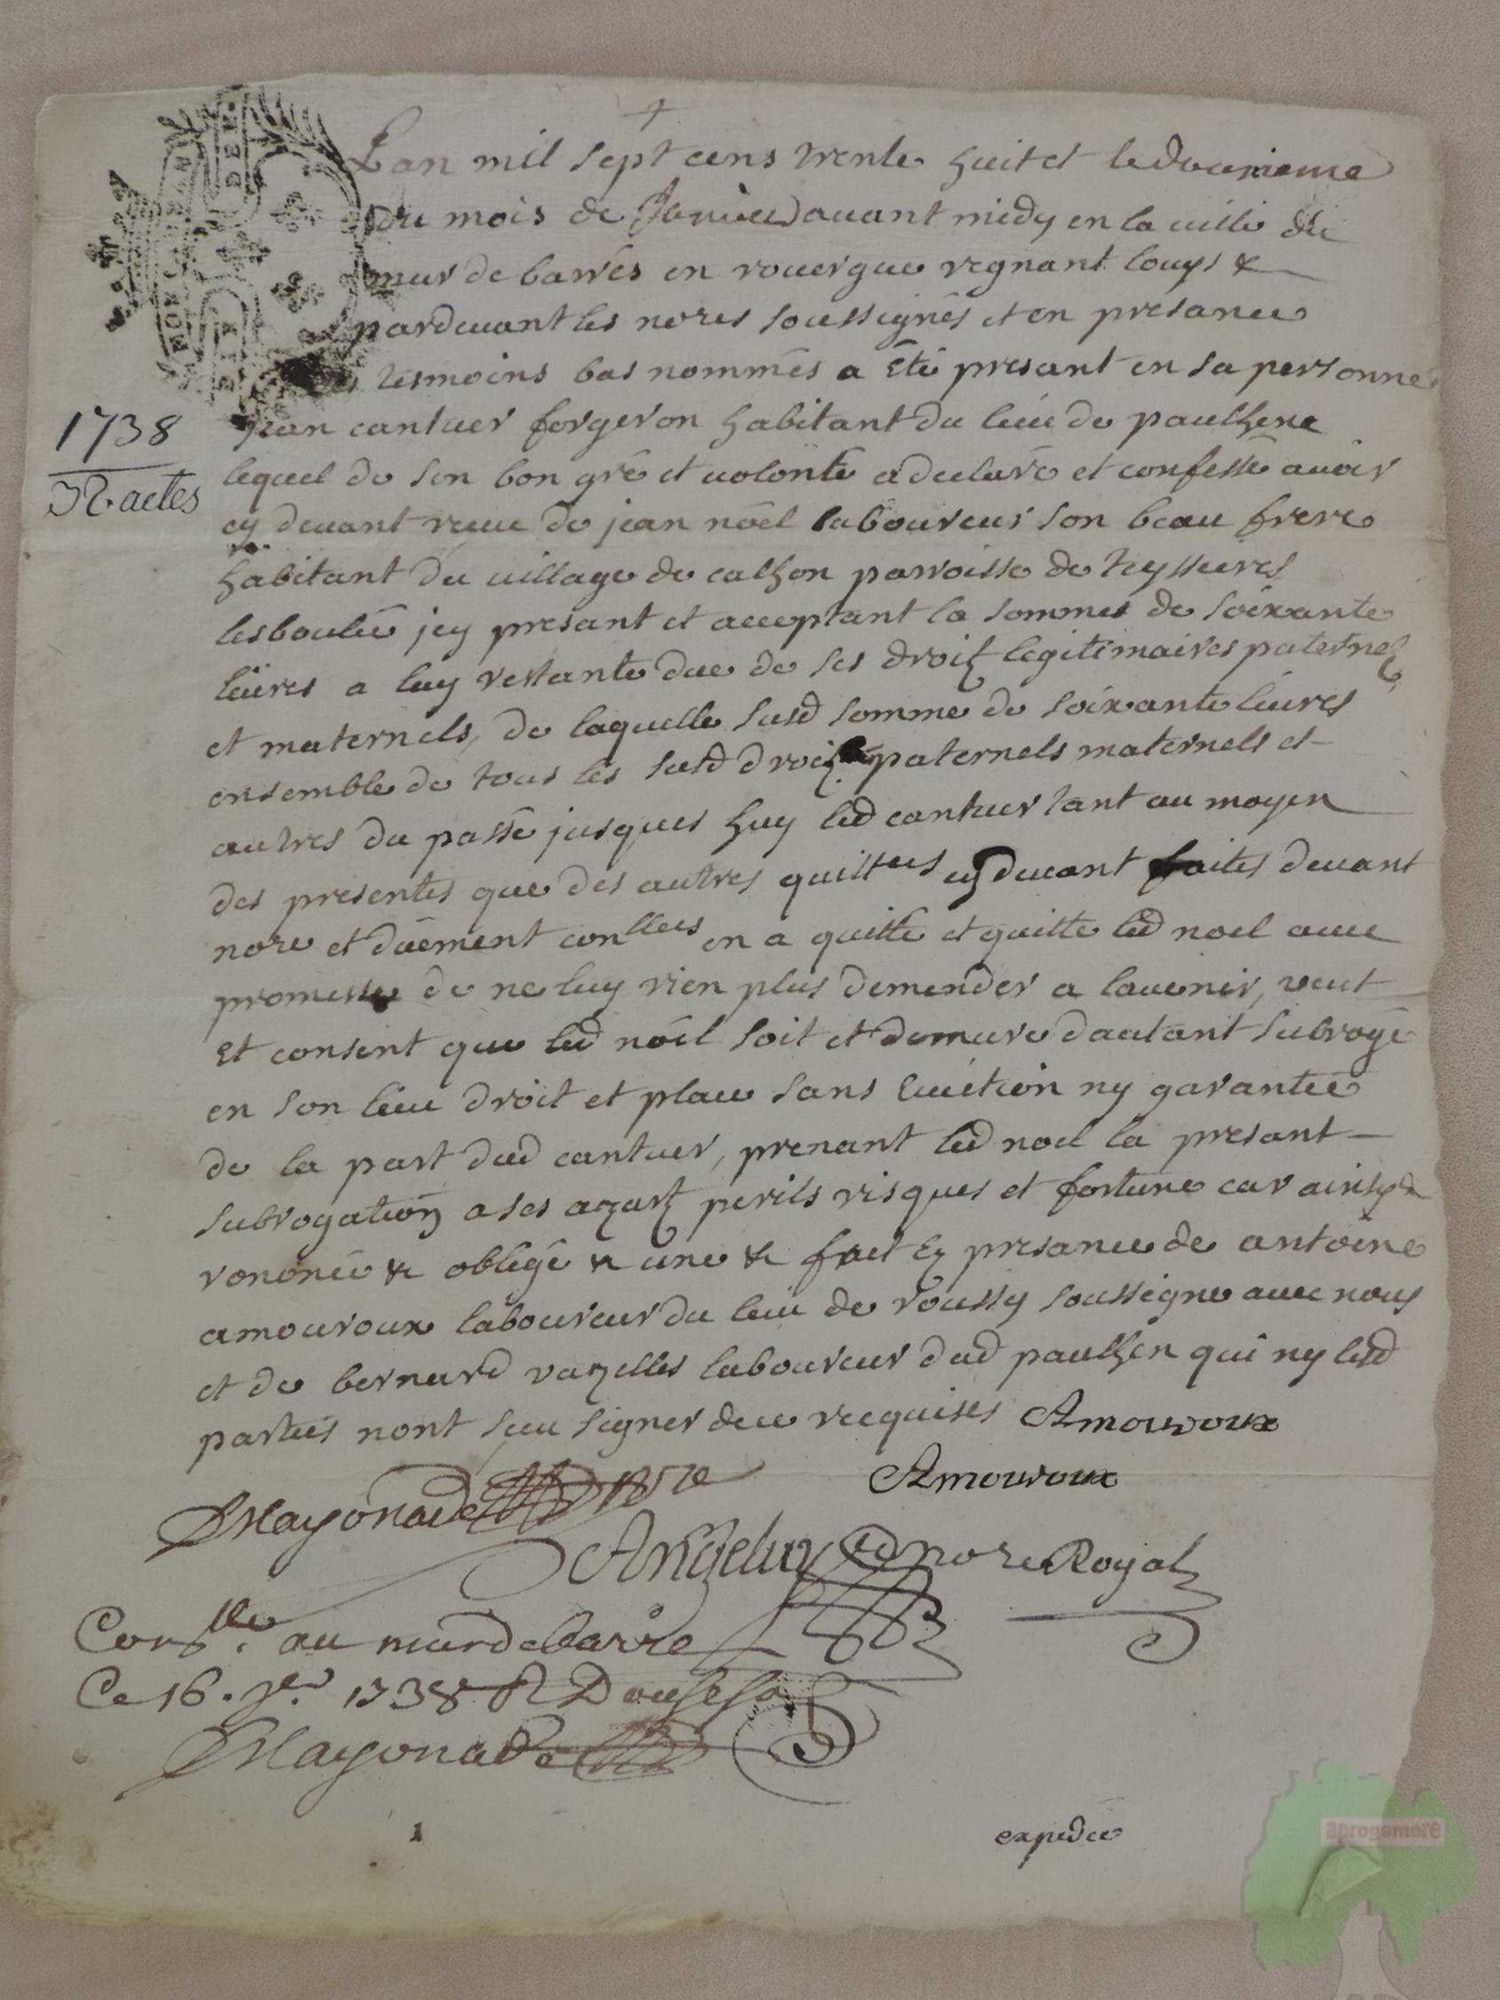 Lan mil sept cens trente huit et le douzieme
du mois de Janvier avant midy en la ville du
mur de barres en rouergue regnant louys &
pardevant les nores soussignés et en presance
tesmoins bas nommés a été presant en sa personne
jean cantuer forgeron habitant du lieu de paulhenc
lequel de son bon gré et volonté a declaré et confessé avoir
cy devant receu de jean noël laboureur son beau frere
habitant du village de calhon parroisse de teyssieres
lesboulie jcy presant et acceptant la somme de soixante
livres a luy restante due de ses droitz legitimaires paternelz
et maternels, de laquelle susd somme de soixante livres
ensemble de tous les susd droitz paternels maternels et
autres du passé jusques huy led cantuer tant au moyen
des presentes que des autres quittces cy devant faites devant
nore et duement conllees en a quitté et quitte led noel avec
promesse de ne luy rien plus demender a lavenir, veut
Et consent que led noël soit et demure dautant subrogé
en son lieu droit et place sans Eviction ny garantie
de la part dud cantuer, prenant led noel la presant
subrogation a ses azartz perils risques et fortune car ainsy &
rononcé & obligé & une & fait Ez presance de antoine
amouroux laboureur du lieu de roussy soussigne avec nous
et de bernard vazelles laboureur dud paulhen qui ny lesd
parties nont sceu signer de ce recquises Amouroux
Amouroux
Mayonade
Angeluy nore Royal
Conlle au murdebarres
Ce 16. jer 1738 R Douse s
Mayonade
1738
actes
1
expediée
aprogemere